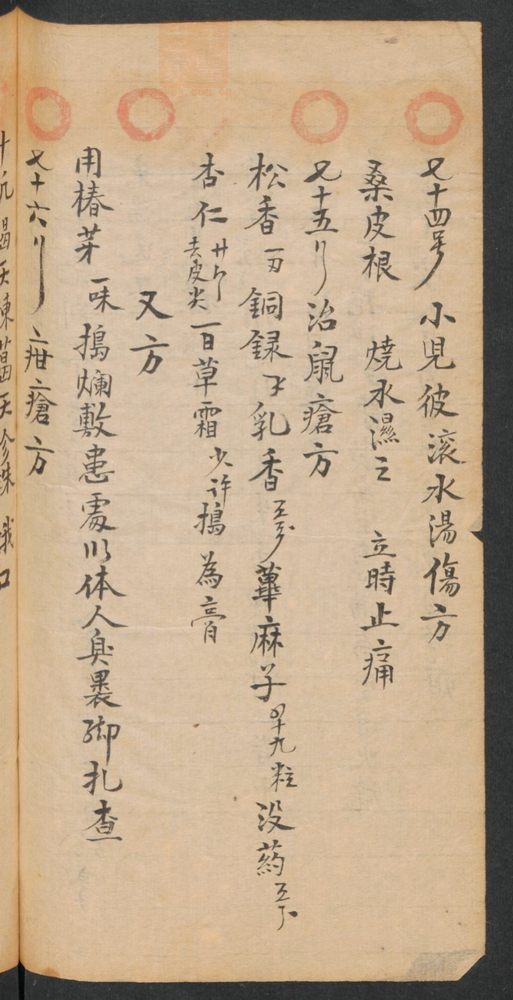 七十四号 小児彼滚水湯傷方
桑皮根 燒水濕之 立時止痛
七十五 治鼠瘡方
松香一刃 銅録 乳香五分 萆麻子四十九粒 没药五分
杏仁廿个去皮尖 百草霜少许 搗為膏
又方
用椿芽一味搗爛敷患處 以体人臭裹脚扎查
七十六 疳瘡方